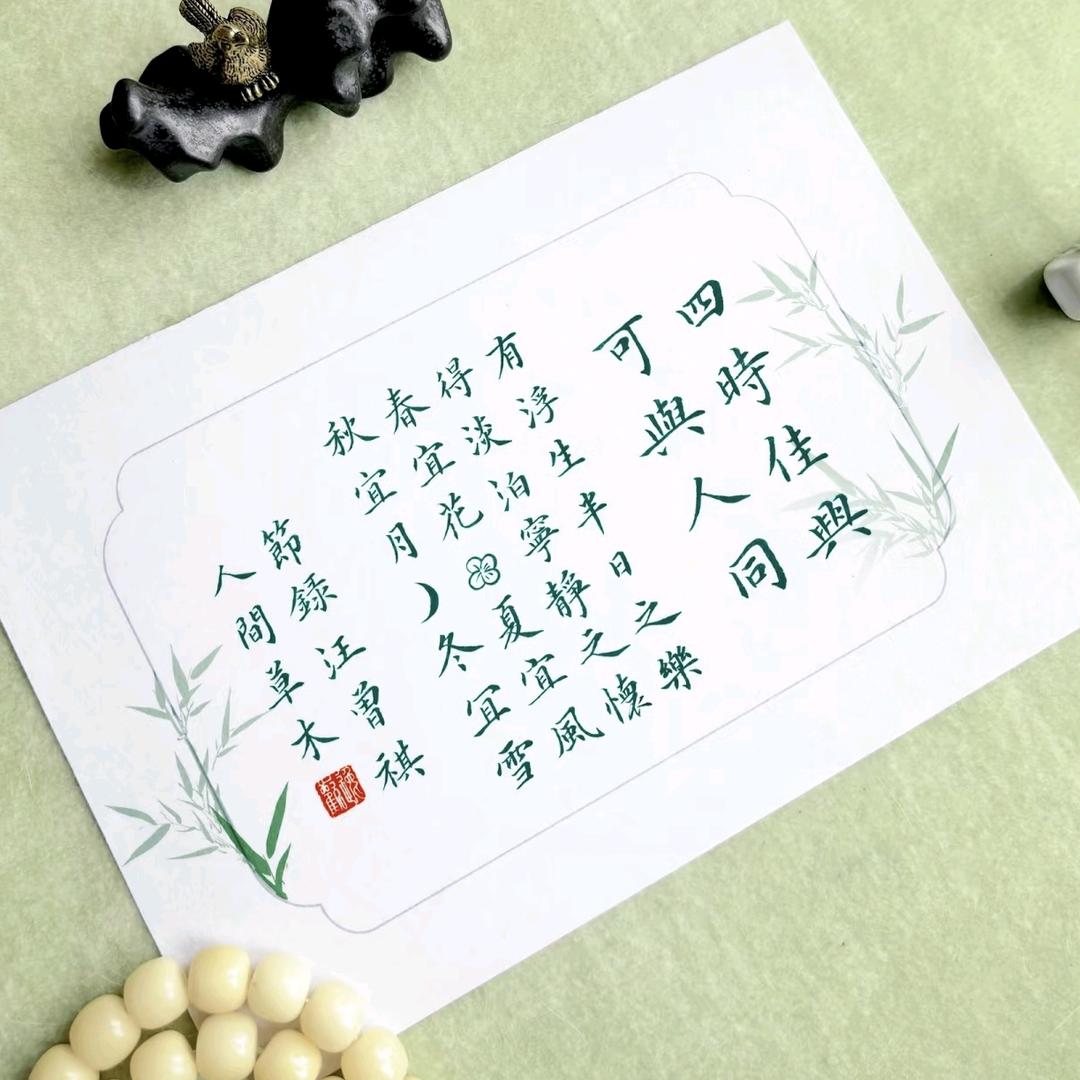 四時佳興
可與人同
有浮生半日之樂
得淡泊寧靜之懷
春宜花夏宜風
秋宜月冬冝雪
節録汪曾祺
人間草木